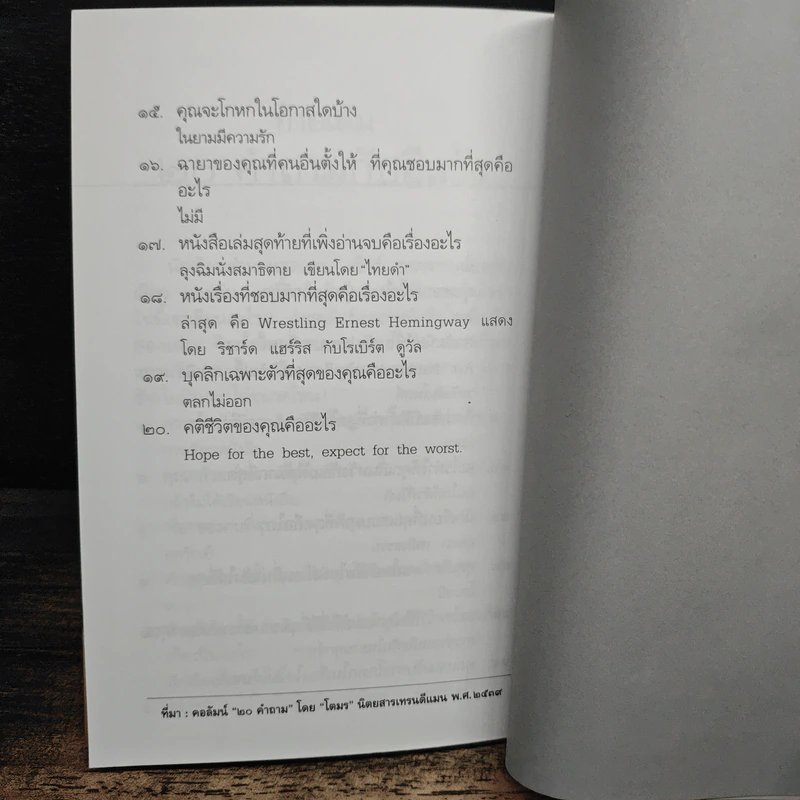 ๑๕. คุณจะโกหกในโอกาสใดบ้าง
ในยามมีความรัก
๑๖. ฉายาของคุณที่คนอื่นตั้งให้ ที่คุณชอบมากที่สุดคือ
อะไร
ไม่มี
๑๗. หนังสือเล่มสุดท้ายที่เพิ่งอ่านจบคือเรื่องอะไร
ลุงฉิมนั่งสมาธิตาย เขียนโดย "ไทยดำ"
๑๘. หนังเรื่องที่ชอบมากที่สุดคือเรื่องอะไร
ล่าสุด คือ Wrestling Ernest Hemingway แสดง
โดย ริชาร์ด แฮร์ริส กับโรเบิร์ต ดูวัล
๑๙. บุคลิกเฉพาะตัวที่สุดของคุณคืออะไร
ตลกไม่ออก
๒๐. คติชีวิตของคุณคืออะไร
Hope for the best, expect for the worst.
ที่มา : คอลัมน์ "๒๐ คำถาม" โดย "โตมร" นิตยสารเทรนดีแมน พ.ศ.๒๕๓๙